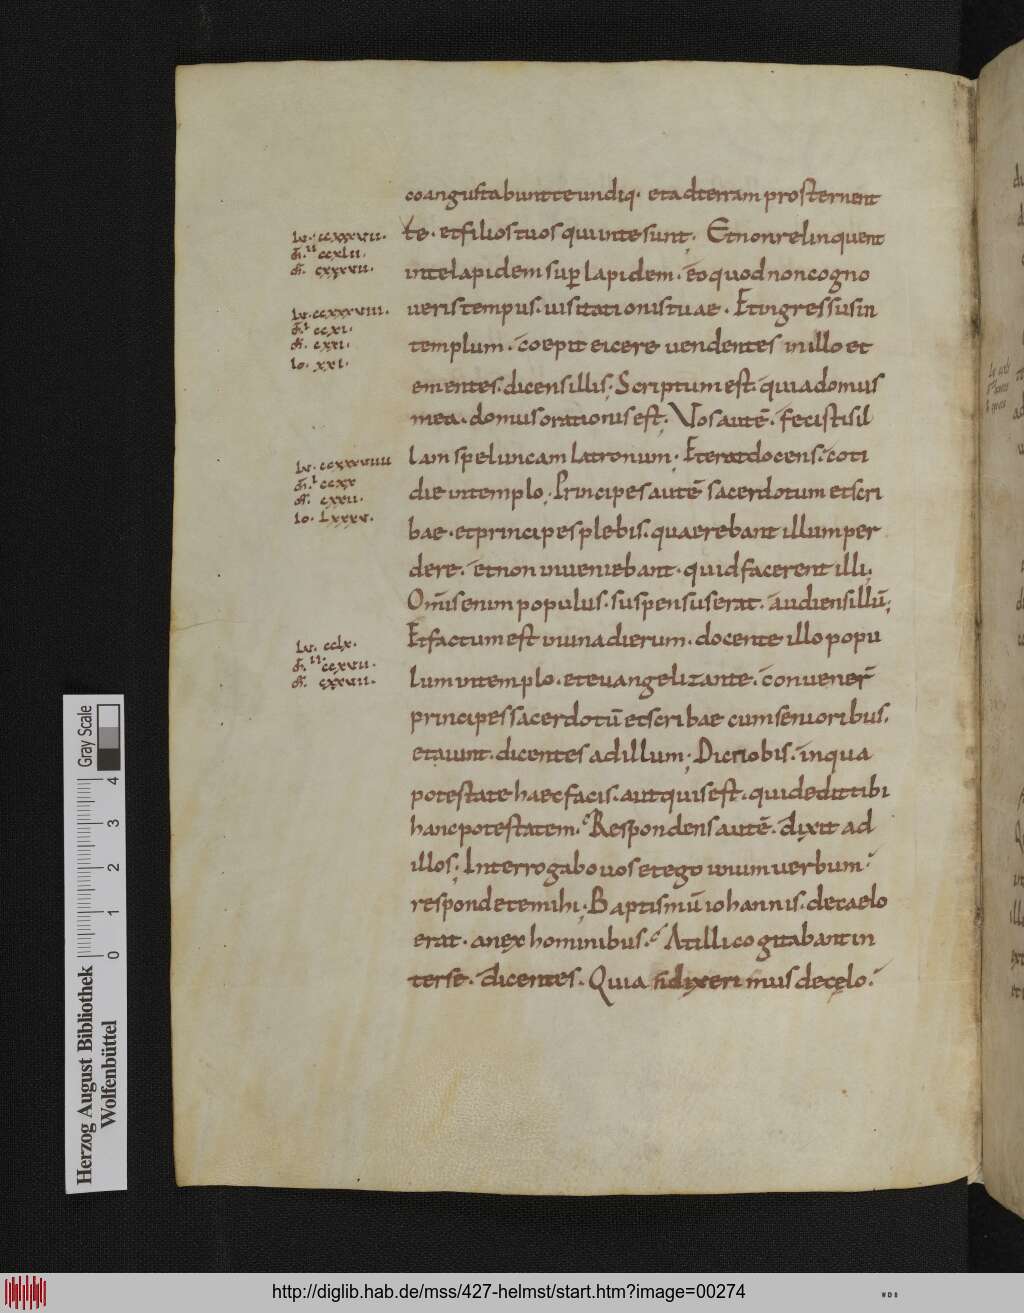 coangustabunt te undiq· et ad terram prosternent
te· et filios tuos qui in te sunt; Et non relinquent
in te lapidem sup lapidem· eo quod non cogno
veris tempus· visitationis tuae· Et ingressus in
templum· coepit eicere vendentes in illo et
ementes· dicens illis; Scriptum est· quia domus
mea· domus orationis est; Vos autē· fecistis il
lam speluncam latronum; Et erat docens· coti
die in templo; Principes autē sacerdotum et scri
bae· et principes plebis· quaerebant illum per
dere· et non inveniebant· quid facerent illi;
Om̄is enim populus· suspensus erat· audiens illū;
Et factum est in una dierum· docente illo popu
lum in templo· et evangelizante· convener̄
principes sacerdotū et scribae cum senioribus·
et aiunt· dicentes ad illum; Dic nobis· in qua
potestate haec facis· aut quis est· qui dedit tibi
hanc potestatem· Respondens autē· dixit ad
illos; Interrogabo vos et ego unum verbum·
respondete mihi; Baptismū iohannis· de caelo
erat· an ex hominibus· At illi cogitabant in
ter se· dicentes· Quia si dixerimus de cęlo·
Lu· ccxxxvii·
ccxlii·
cxxxvii·
Lu· ccxxxviii·
ccxi·
cxxi·
Io· xxi·
Lu· ccxxxviiii
ccxx
cxxii·
Io· Lxxxv·
Lu· cclx·
ccxvii·
cxxvii·
Gray Scale
4
3
2
1
0
Herzog August Bibliothek
Wolfenbüttel
http://diglib.hab.de/mss/427-helmst/start.htm?image=00274